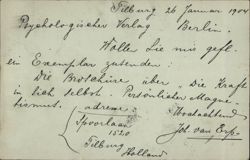 Tilburg 26 Januar 1904
Psychologischer Verlag Berlin.
Wollen Sie mir gefl.
ein Exemplar zusenden:
Die Broschüre über "Die Kraft
in sich selbst. Persönlicher Magne-
tismus.
Hochachtend
adresse:
Joh. van Erp
Spoorlaan
1520
Tilburg
Holland